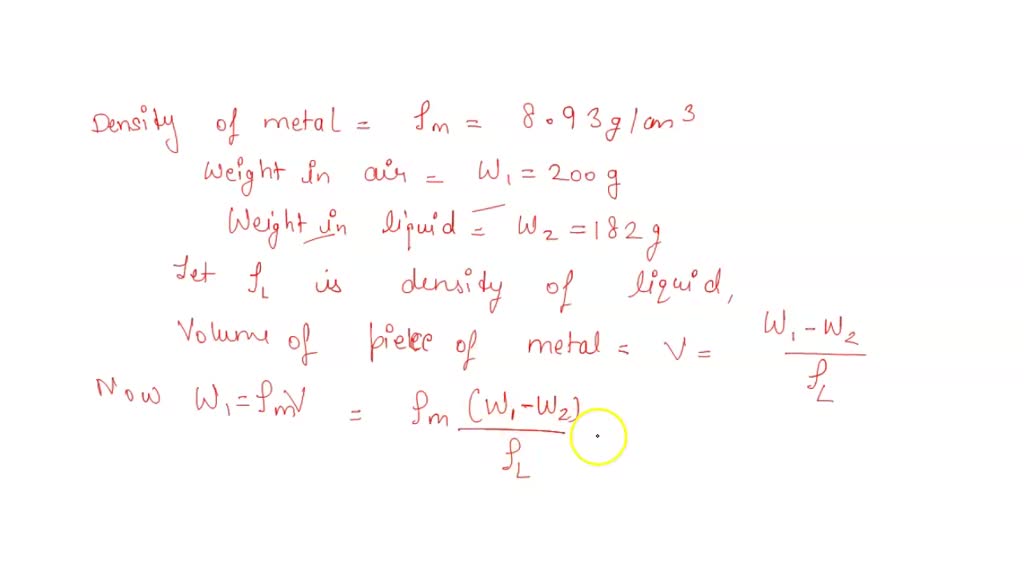 Density of metal = ρm = 8.93 g/cm³
Weight in air = W₁ = 200 g
Weight in liquid = W₂ = 182 g
Let ρL is density of liquid,
Volume of piece of metal = V = (W₁ - W₂)/ρL
Now W₁ = ρmV = ρm (W₁ - W₂)/ρL